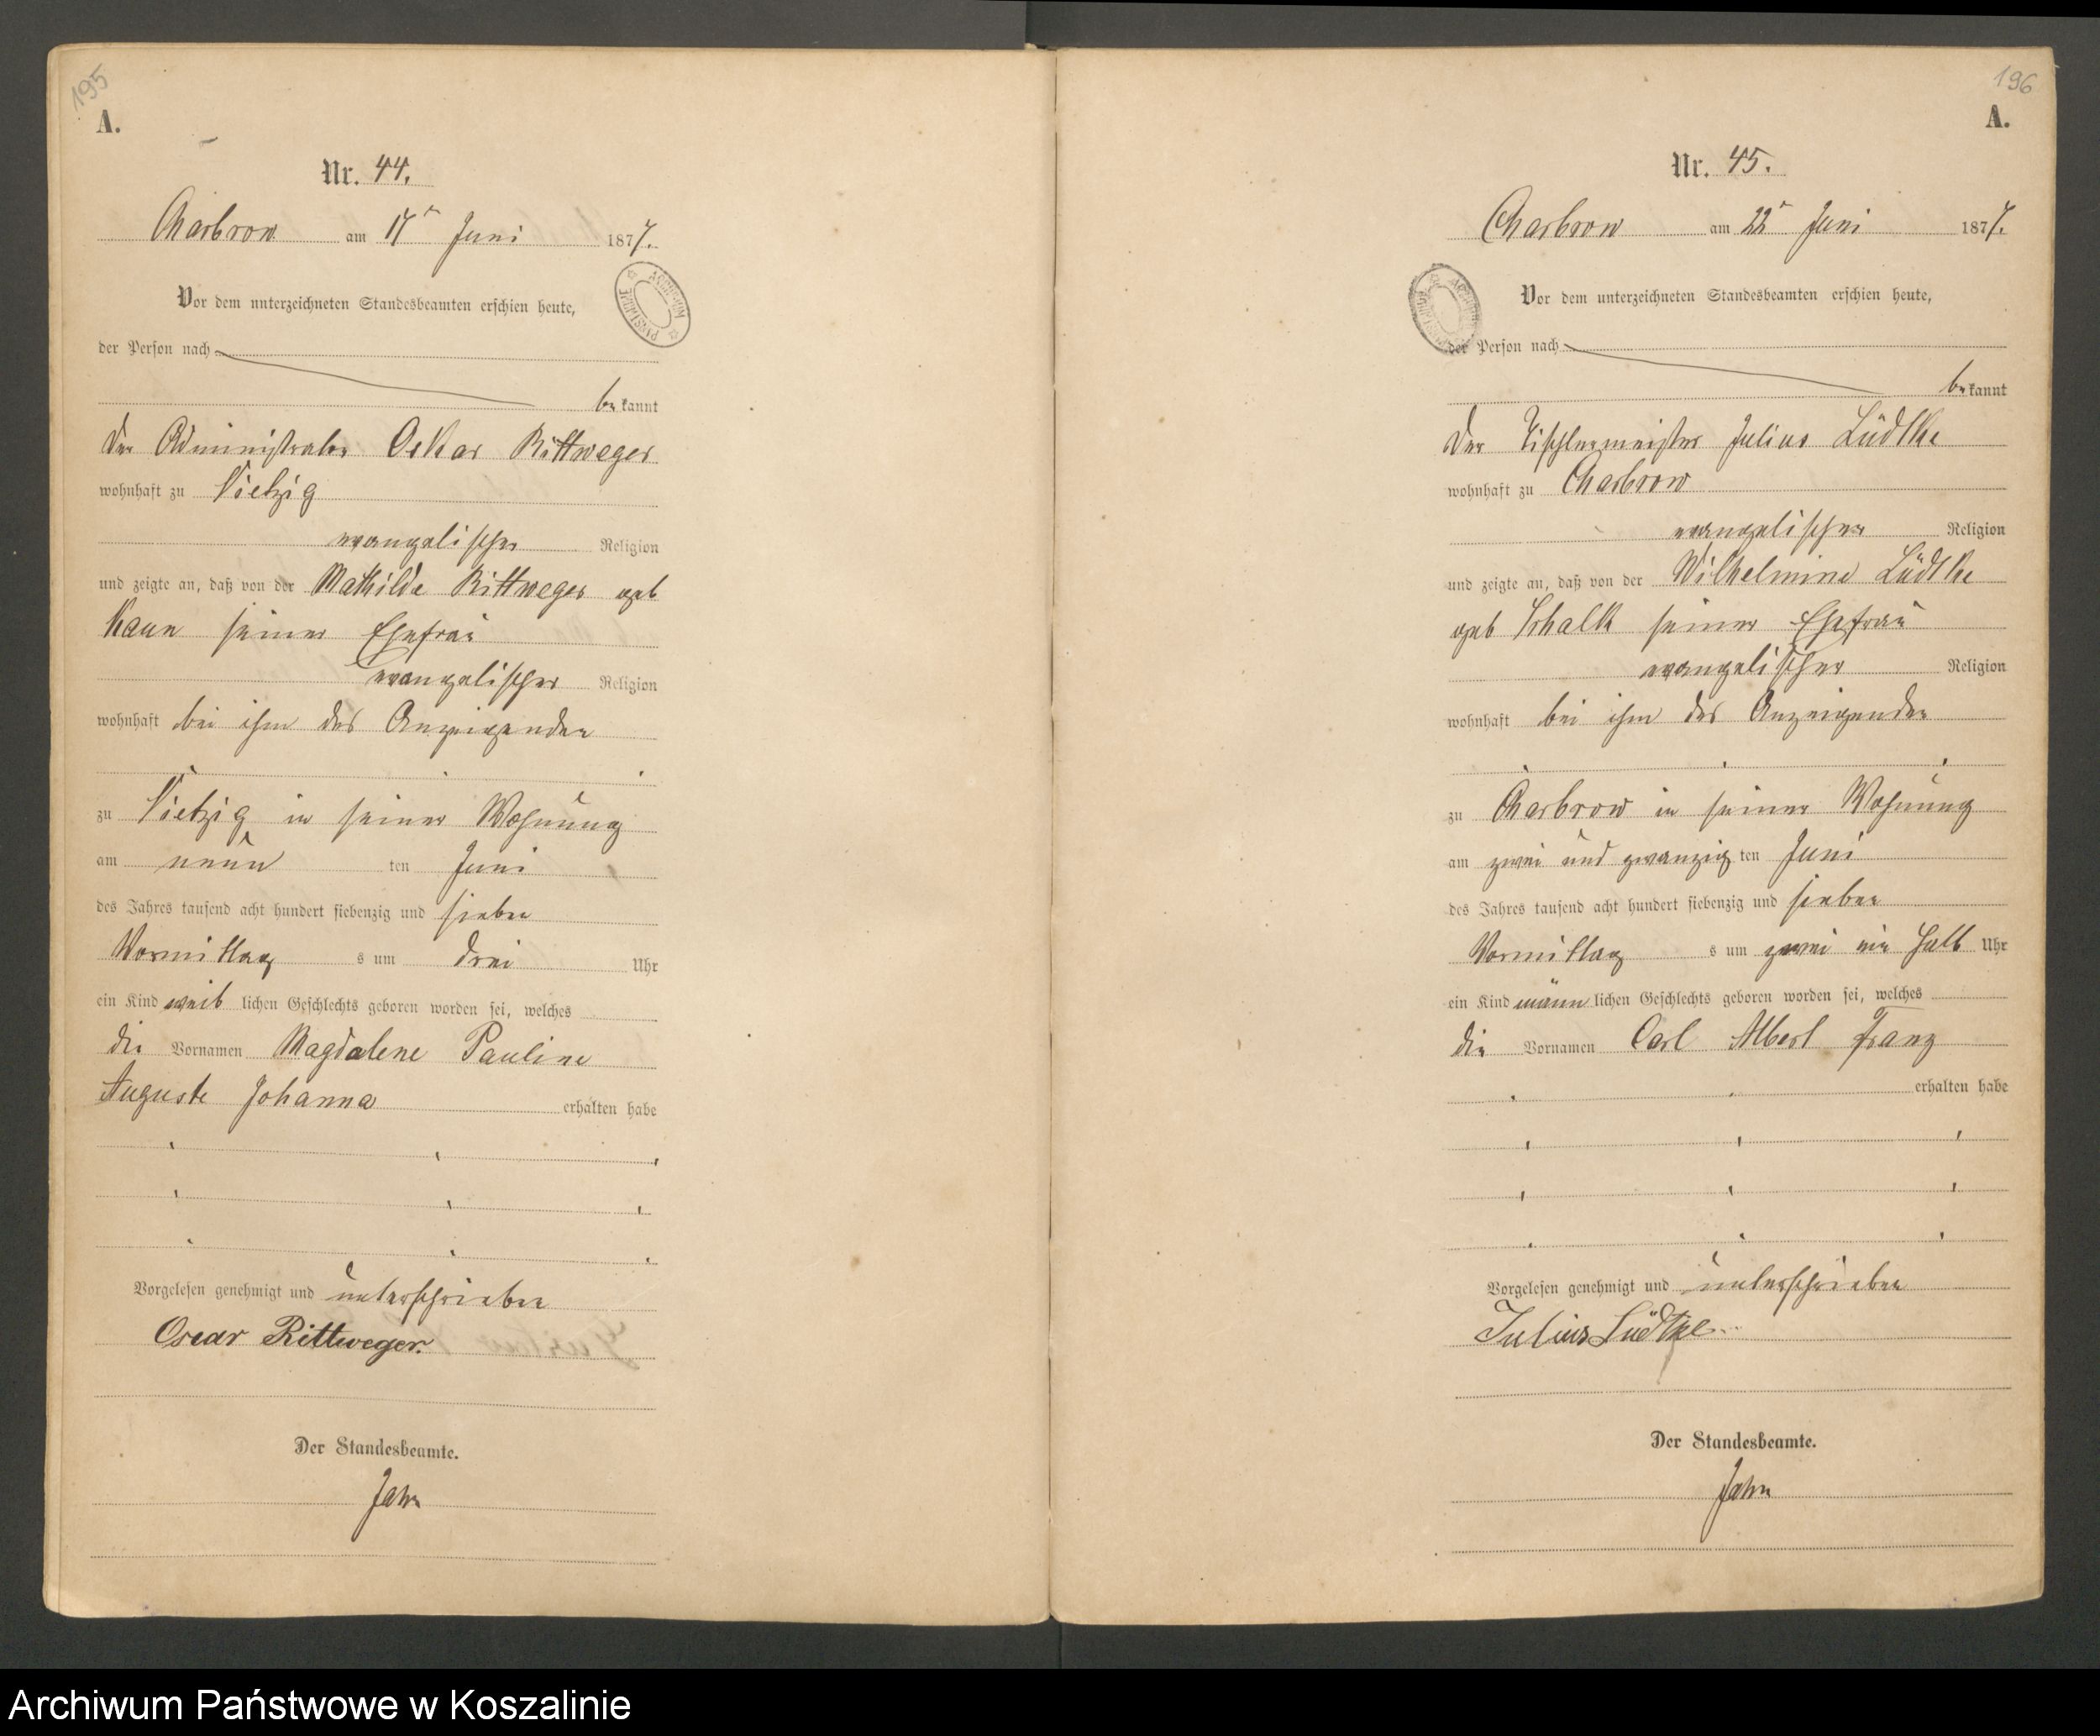 195
A.
Nr. 44.
Charbrow am 17t Juni 1877.
Vor dem unterzeichneten Standesbeamten erschien heute,
der Person nach
bekannt
der Administrator Oskar Rittweger
wohnhaft zu Vietzig
evangelischer Religion
und zeigte an, daß von der Mathilde Rittweger geb
Kaun seiner Ehefrau
evangelischer Religion
wohnhaft bei ihm des Anzeigenden
zu Vietzig in seiner Wohnung
am neun ten Juni
des Jahres tausend acht hundert siebenzig und sieben
Vormittag s um drei Uhr
ein Kind weib lichen Geschlechts geboren worden sei, welches
die Vornamen Magdalene Pauline
Auguste Johanna erhalten habe
Vorgelesen genehmigt und unterschrieben
Oscar Rittweger.
Der Standesbeamte.
Jahn
196
A.
Nr. 45.
Charbrow am 22t Juni 1877.
Vor dem unterzeichneten Standesbeamten erschien heute,
der Person nach
bekannt
der Tischlermeister Julius Lüdtke
wohnhaft zu Charbrow
evangelischer Religion
und zeigte an, daß von der Wilhelmine Lüdtke
geb Schalk seiner Ehefrau
evangelischer Religion
wohnhaft bei ihm des Anzeigenden
zu Charbrow in seiner Wohnung
am zwei und zwanzig ten Juni
des Jahres tausend acht hundert siebenzig und sieben
Vormittag s um zwei ein halb Uhr
ein Kind männ lichen Geschlechts geboren worden sei, welches
die Vornamen Carl Albert Franz
erhalten habe
Vorgelesen genehmigt und unterschrieben
Julius Lüdtke
Der Standesbeamte.
Jahn
Archiwum Państwowe w Koszalinie